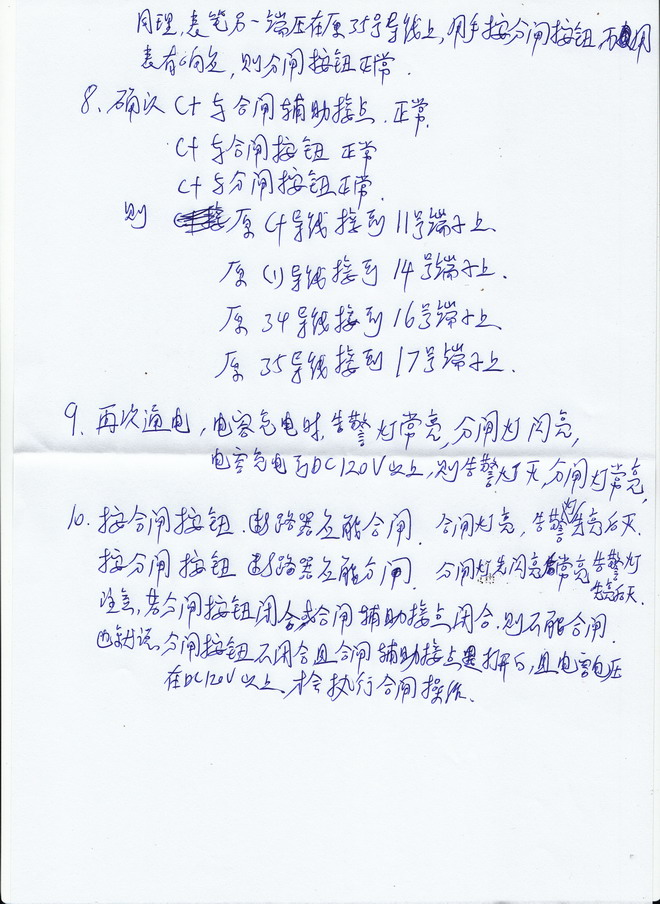 同理,表笔另一端压在原35号导线上,用手按分闸按钮,万用
表有响应,则分闸按钮正常.
8、确认 C+与合闸辅助接点.正常.
C+与合闸按钮 正常
C+与分闸按钮正常.
则 原C+导线接到11号端子上.
原C1导线接到14号端子上.
原34导线接到16号端子上.
原35导线接到17号端子上.
9.再次通电,电容充电时,告警灯常亮,分闸灯闪亮,
电容充电到DC120V以上,则告警灯灭,分闸灯常亮,
10.按合闸按钮.断路器应能合闸.合闸灯亮,告警灯先亮后灭.
按分闸按钮 断路器应能分闸.分闸灯先闪亮后常亮 告警灯
先亮后灭.
注意,若分闸按钮闭合或合闸辅助接点闭合.则不能合闸.
也就是说,分闸按钮不闭合且合闸辅助接点是打开的,且电容电压
在DC120V以上,才会执行合闸操作.